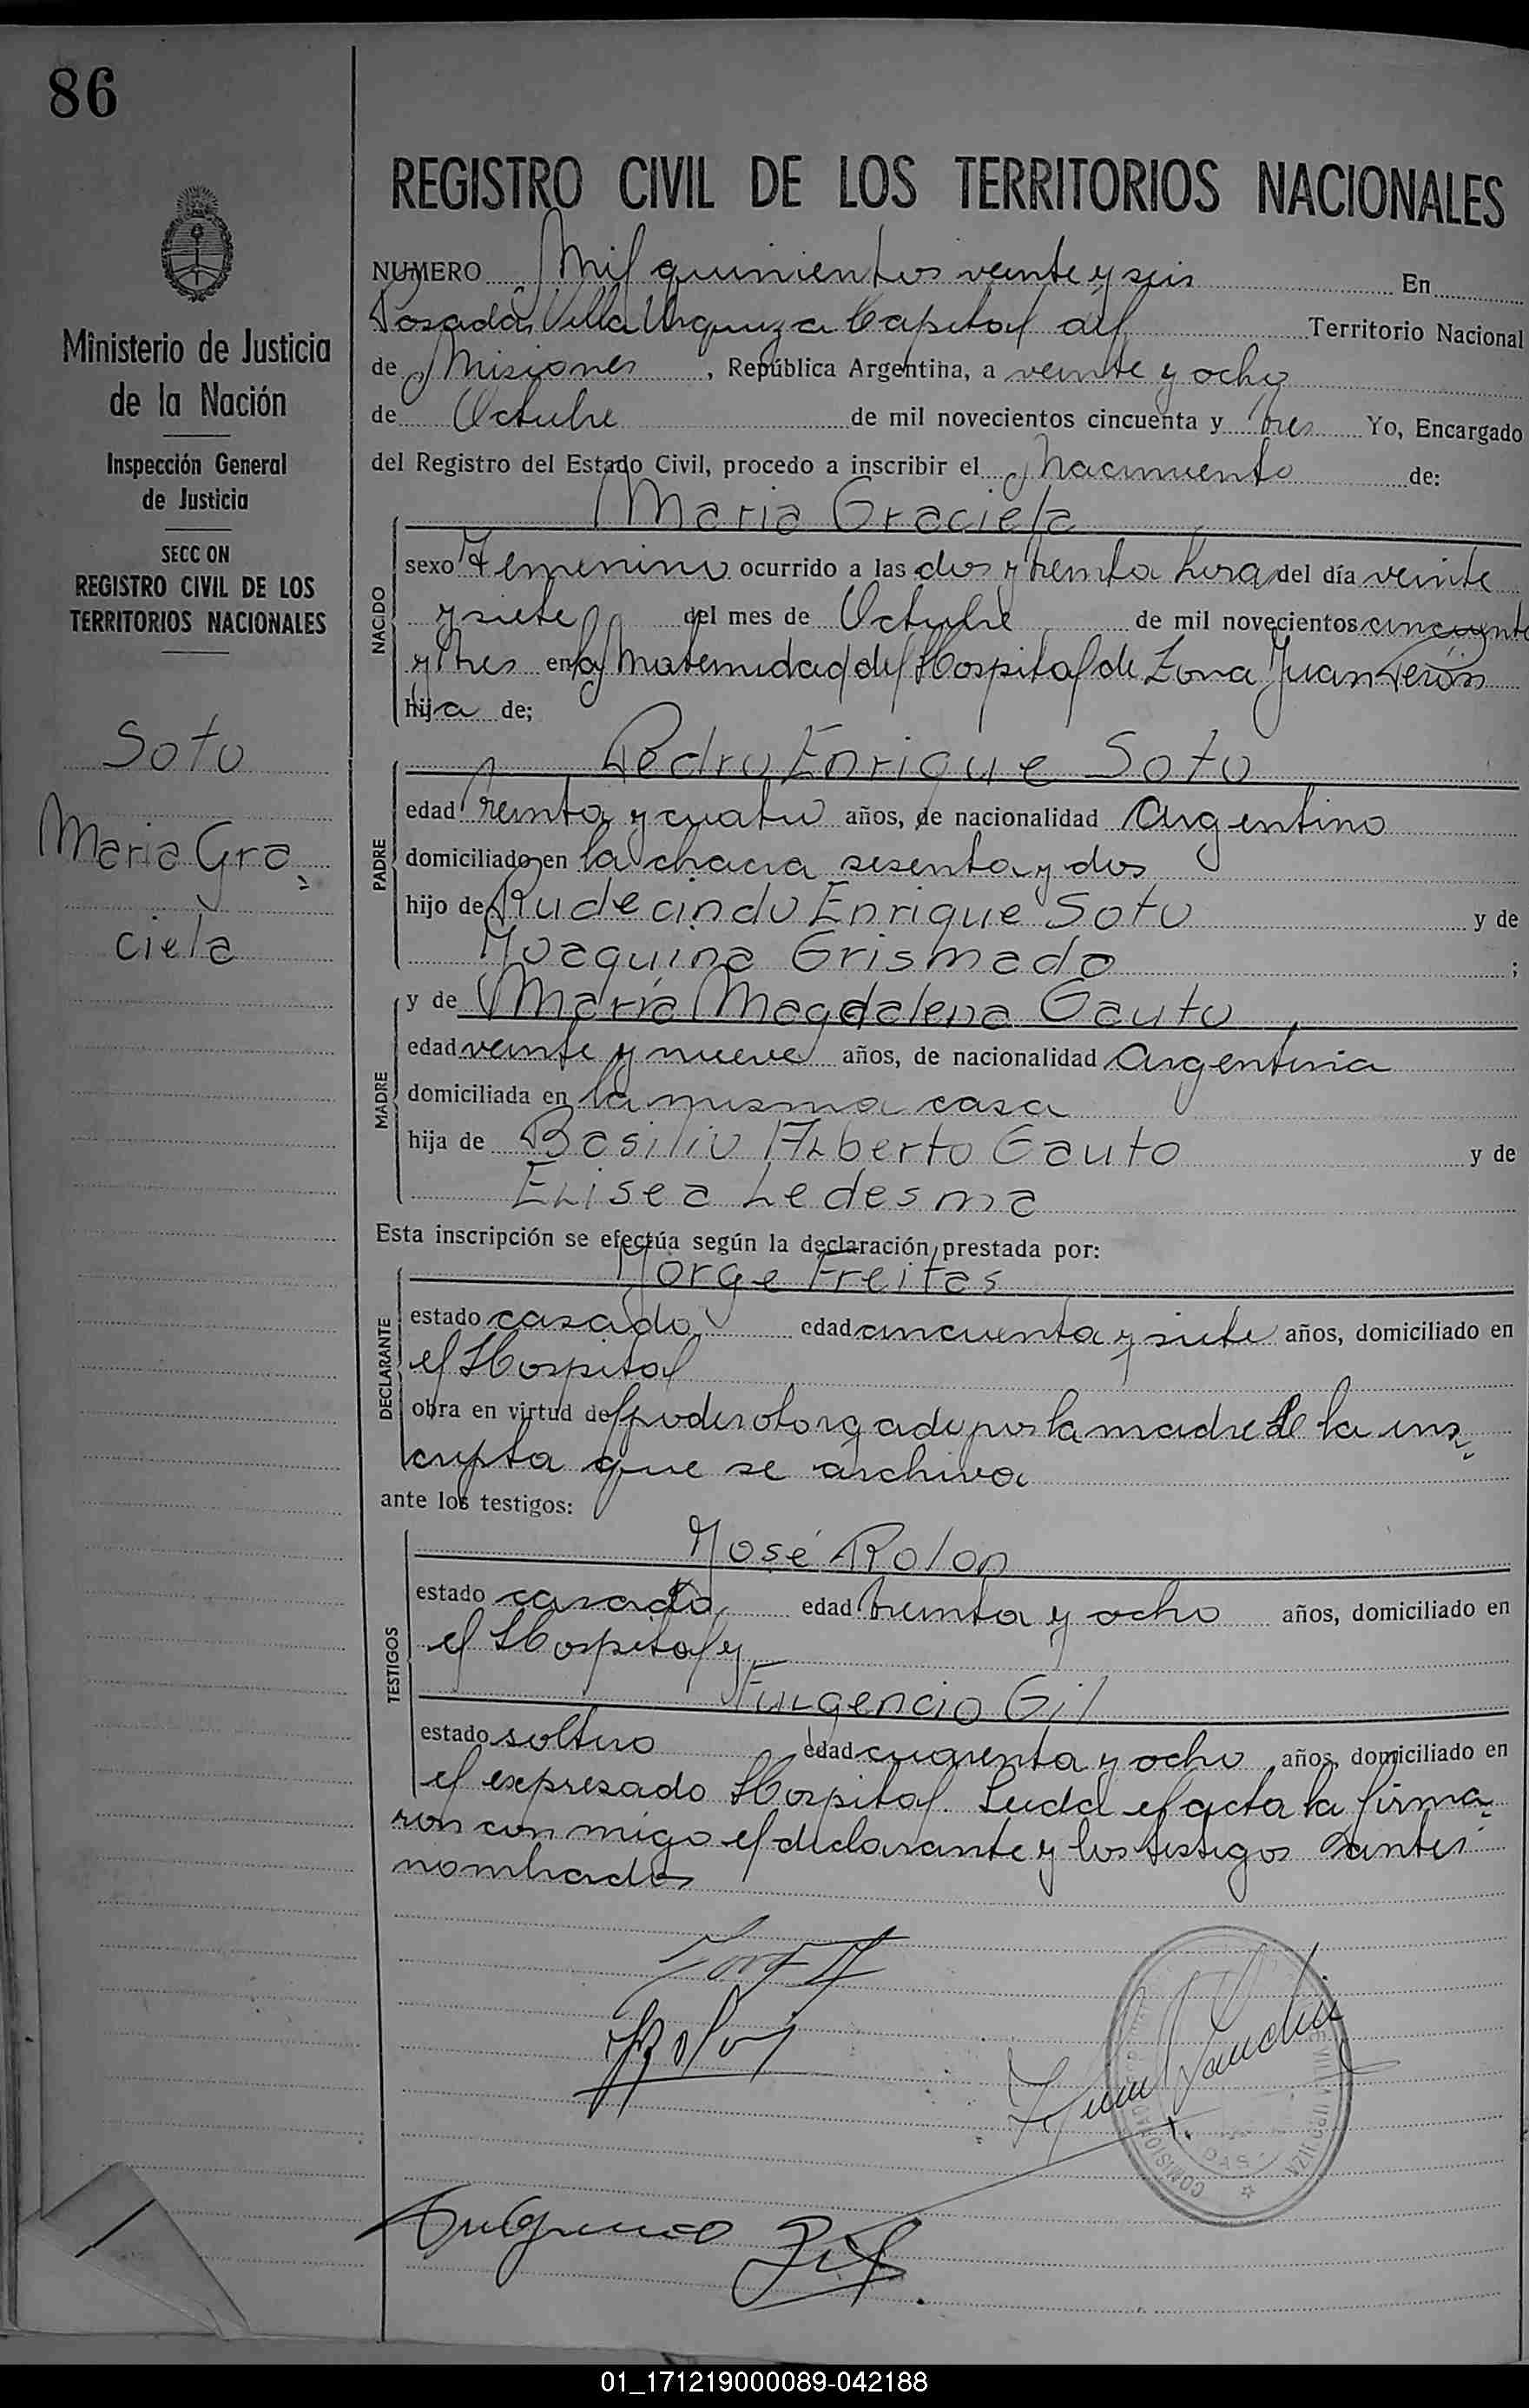 86
Ministerio de Justicia
de la Nación
Inspección General
de Justicia
SECC ON
REGISTRO CIVIL DE LOS
TERRITORIOS NACIONALES
Soto
Maria Gra=
ciela
REGISTRO CIVIL DE LOS TERRITORIOS NACIONALES
NUMERO Mil quinientos veinte y seis En
Posadas, Villa Urquiza Capital del Territorio Nacional
de Misiones, República Argentina, a veinte y ocho
de Octubre de mil novecientos cincuenta y tres Yo, Encargado
del Registro del Estado Civil, procedo a inscribir el Nacimiento de:
Maria Graciela
NACIDO
sexo Femenino ocurrido a las dos y treinta hora del día veinte
y siete del mes de Octubre de mil novecientos cincuenta
y tres en la Maternidad del Hospital de Zona Juan Perón
hija de;
PADRE
Pedro Enrique Soto
edad treinta y cuatro años, de nacionalidad Argentino
domiciliado en la chacra sesenta y dos
hijo de Rudecindo Enrique Soto y de
Joaquina Grismado ;
MADRE
y de María Magdalena Gauto
edad veinte y nueve años, de nacionalidad Argentina
domiciliada en la misma casa
hija de Basilio Alberto Gauto y de
Elisea Ledesma
Esta inscripción se efectúa según la declaración prestada por:
DECLARANTE
Jorge Freitas
estado casado edad cincuenta y siete años, domiciliado en
el Hospital
obra en virtud del poder otorgado por la madre de la ins=
cripta que se archiva
ante los testigos:
TESTIGOS
José Rolon
estado casado edad treinta y ocho años, domiciliado en
el Hospital y
Fulgencio Gil
estado soltero edad cuarenta y ocho años, domiciliado en
el expresado Hospital. Leída el acta la firma=
ron conmigo el declarante y los testigos antes
nombrados
JRolon
Fulgencio Gil
COMISIONADO
VILLA URQUIZA
01_171219000089-042188